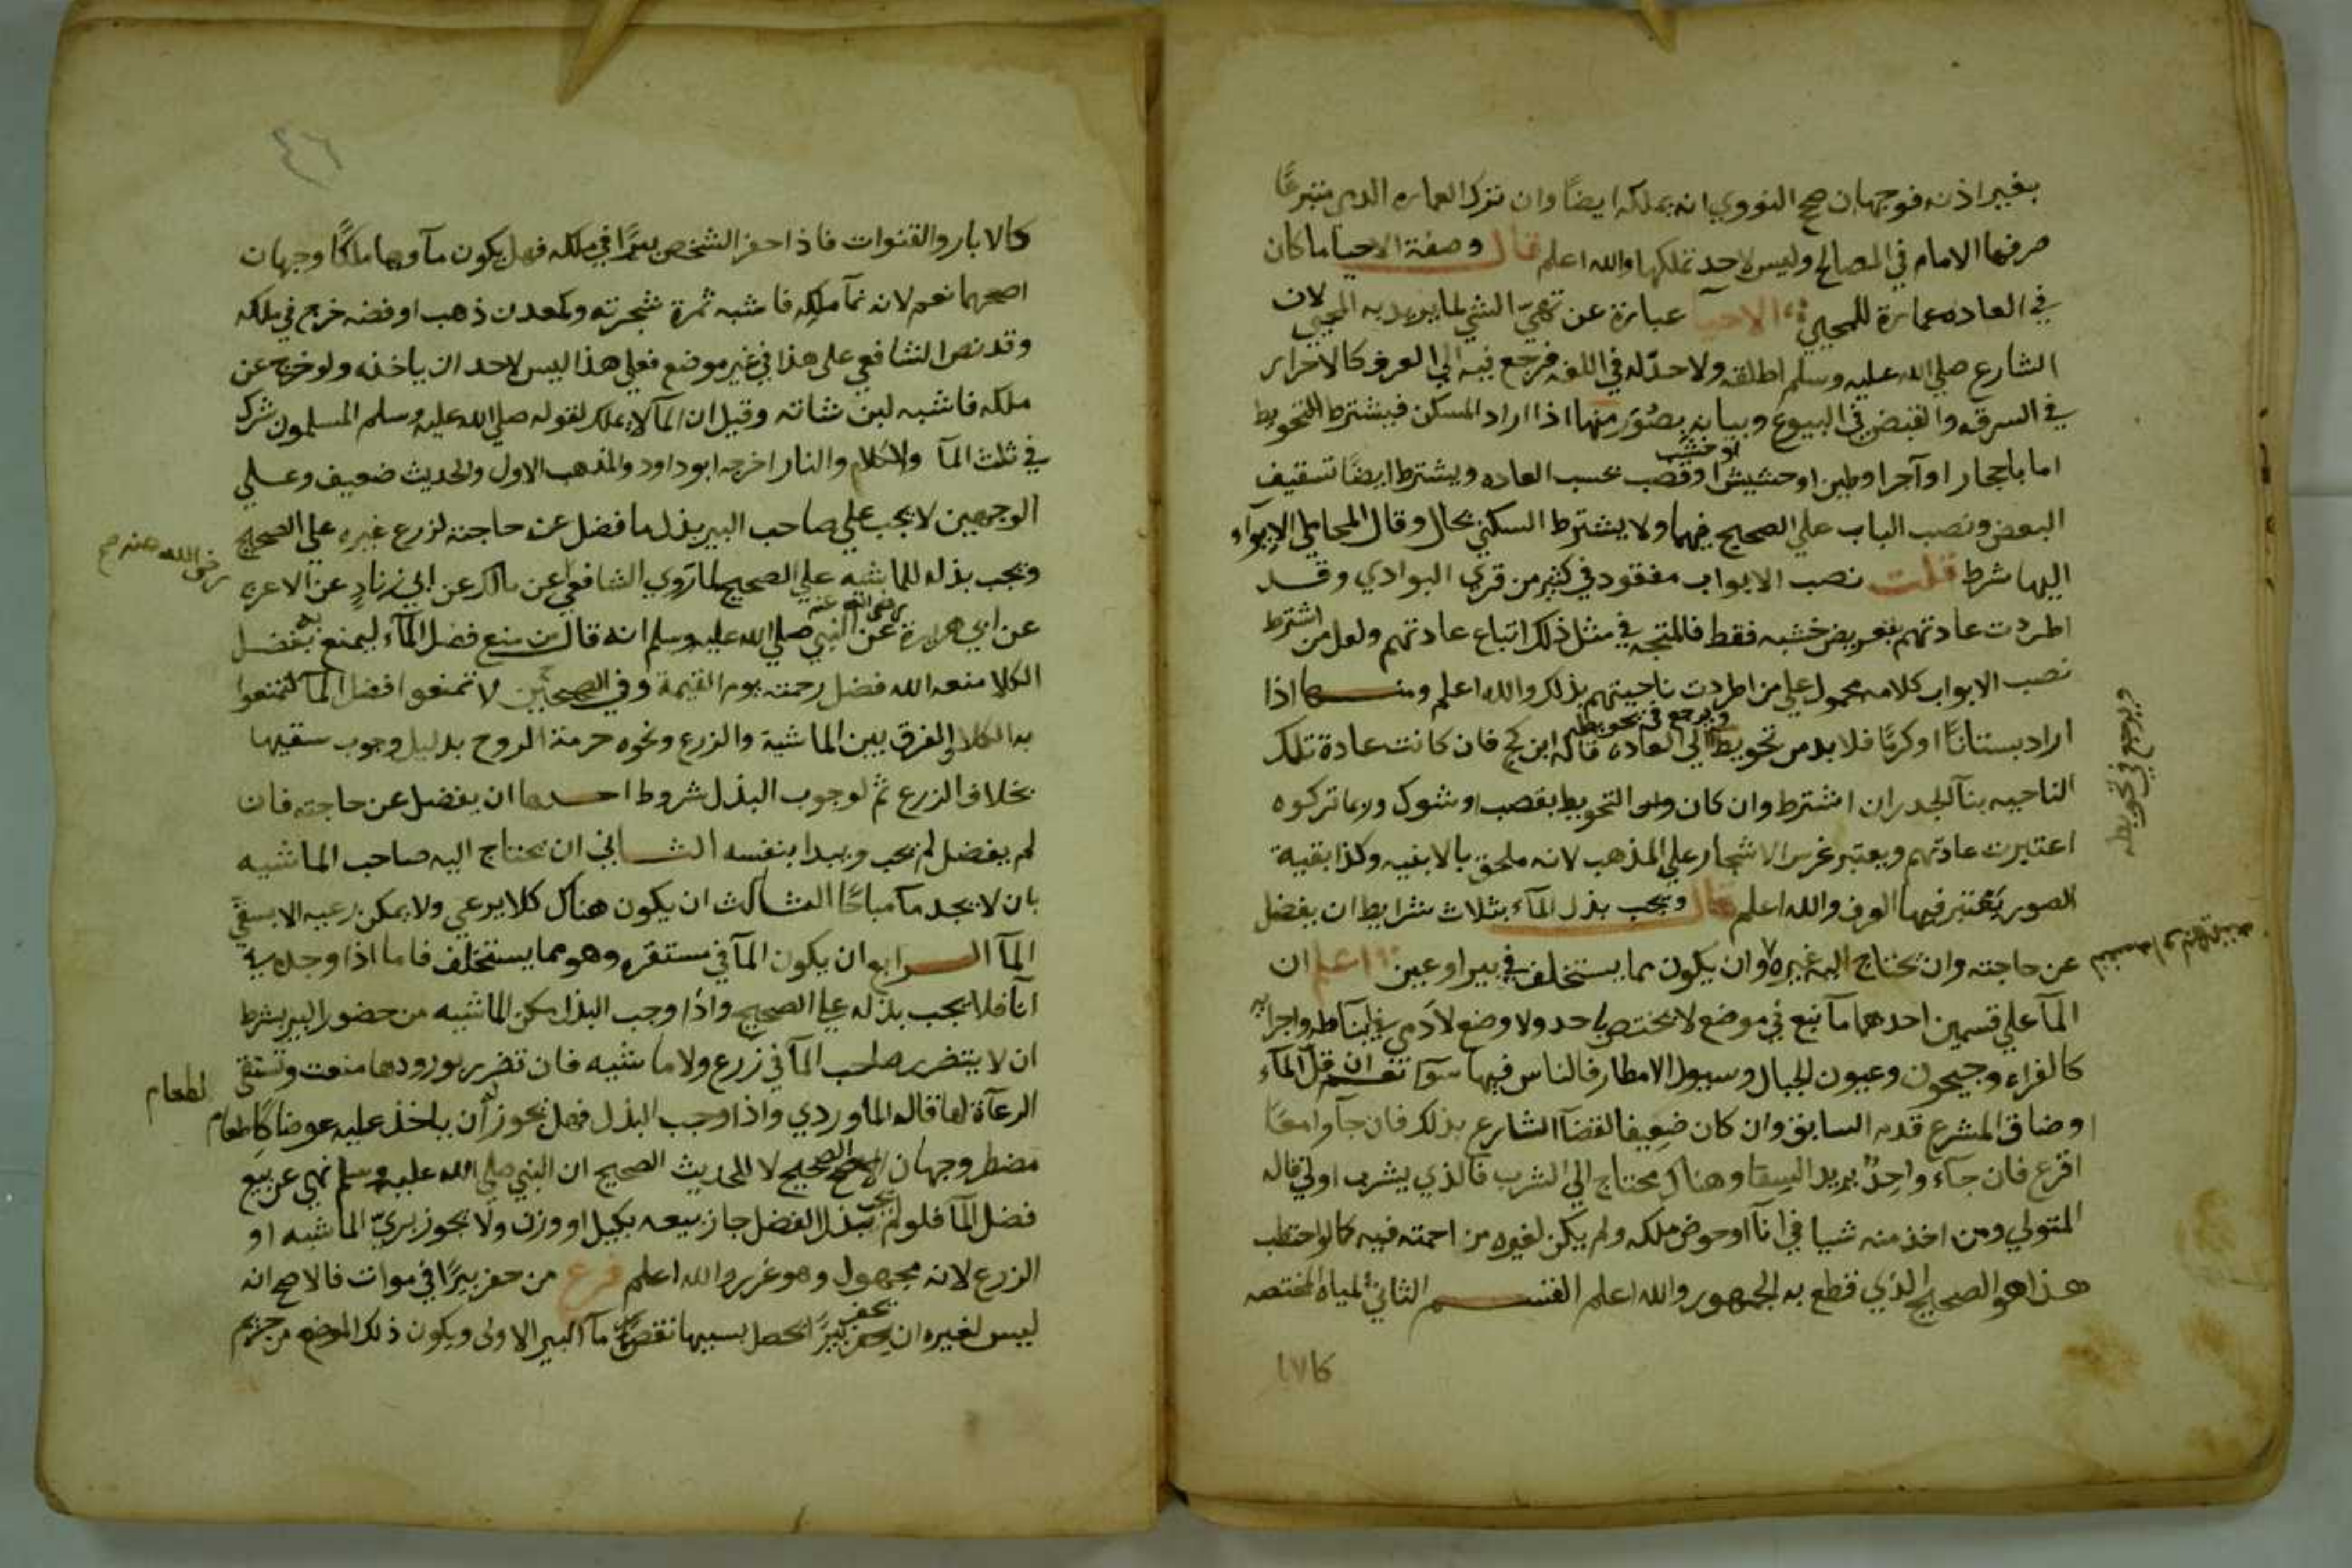 بغير اذنه فوجهان صحح النووي انه يملكه ايضا وان ترك العماره الذمي متبرعًا
صرفها الامام في المصالح وليس لاحد تملكها والله اعلم قال وصفة الاحيا ما كان
في العاده عمارة للمحيي الاحيا عبارة عن تهيئ الشي لما يريد به المحيي لان
الشارع صلي الله عليه وسلم اطلقه ولا حدّ له في اللغه فرجع فيه الي العرف كالاحراز
في السرقه والقبض في البيوع وبيانه بصُوَر منها اذا اراد المسكن فيشترط التحويط
اما باحجار او آجر او طين او حشيش او خشب او قصب بحسب العاده ويشترط ايضًا تسقيف
البعض ونصب الباب علي الصحيح فيهما ولا يشترط السكني بحال وقال المحاملي الايواء
اليها شرط قلت نصب الابواب مفقود في كثير من قري البوادي وقد
اطردت عادتهم بتعريض خشبه فقط فالمتجه في مثل ذلك اتباع عادتهم ولعل من اشترط
نصب الابواب كلامه محمول علي من اطردت ناحيتهم بذلك والله اعلم ومنها اذا
اراد بستانًا او كرمًا فلا بد من تحويط ويرجع في تحويطه الي العاده قاله ابن كج فان كانت عادة تلك
الناحيه بنآ الجدران اشترط وان كان التحويط بقصب او شوك وربما تركوه
اعتبرت عادتهم ويعتبر غرس الاشجار علي المذهب لانه ملحق بالابنيه وكذا بقية
الصور يعتبر فيها العرف والله اعلم قال ويجب بذل المآء بثلاث شرايط ان يفضل
عن حاجته وان يحتاج اليه غيره وان يكون مما يستخلف في بير او عين اعلم ان
المآ علي قسمين احدهما مآ نبع في موضع لا يختص باحد ولا صنع لادمي في انباطه واجرايه
كالفراة وجيحون وعيون الجبال وسيول الامطار فالناس فيها سوآ نعم ان قل المآء
او ضاق المشرع قدم السابق وان كان ضعيفا لقضآ الشارع بذلك فان جآوا معًا
اقرع فان جآء واحدٌ يريد السقا وهناك محتاج الي الشرب فالذي يشرب اولي قاله
المتولي ومن اخذ منه شيا في انآ او حوض ملكه ولم يكن لغيره مزاحمته فيه كما لو احتطب
هذا هو الصحيح الذي قطع به الجمهور والله اعلم القسم الثاني المياه المختصه
كالا
ويرجع في تحويطه
كالابار والقنوات فاذا حفر الشخص بيرًا في ملكه فهل يكون مآوها ملكًا وجهان
اصحهما نعم لانه نمآ ملكه فاشبه ثمرة شجرته وكمعدن ذهب او فضه خرج في ملكه
وقد نص الشافعي علي هذا في غير موضع فعلي هذا ليس لاحد ان ياخذه ولو خرج عن
ملكه فاشبه لبن شاته وقيل ان المآ لا يملك لقوله صلي الله عليه وسلم المسلمون شركا
في ثلث المآ والكلا والنار اخرجه ابو داود والمذهب الاول والحديث ضعيف وعلي
الوجهين لا يجب علي صاحب البير بذل ما فضل عن حاجته لزرع غيره علي الصحيح
ويجب بذله للماشيه علي الصحيح لما روي الشافعي عن مالك عن ابي زنادٍ عن الاعرج
رضي الله عنه صح
عن ابي هريرة رضي الله عنه عن النبي صلي الله عليه وسلم انه قال من منع فضل المآء ليمنع به فضل
الكلا منعه الله فضل رحمته يوم القيمة وفي الصحيحين لا تمنعوا فضل المآ لتمنعوا
به الكلا والفرق بين الماشية والزرع ونحوه حرمة الروح بدليل وجوب سقيها
بخلاف الزرع ثم لوجوب البذل شروط احدها ان يفضل عن حاجته فان
لم يفضل لم يجب ويبدا بنفسه الثاني ان يحتاج اليه صاحب الماشيه
بان لا يجد مآ مباحًا الثالث ان يكون هناك كلا يرعي ولا يمكن رعيه الا بسقي
المآ الرابع ان يكون المآ في مستقره وهو مما يستخلف فاما اذا وجده في
انآ فلا يجب بذله علي الصحيح واذا وجب البذل مكن الماشيه من حضور البير بشرط
ان لا يتضرر صاحب المآ في زرع ولا ماشيه فان تضرر بورودها منعت وتستقي
الرعآة لها قاله الماوردي واذا وجب البذل فهل يجوز له ان ياخذ عليه عوضا كاطعام
لطعام
مضطر وجهان الصحيح لا للحديث الصحيح ان النبي صلي الله عليه وسلم نهي عن بيع
فضل المآ فلو لم يجب بذل الفضل جاز بيعه بكيل او وزن ولا يجوز بريّ الماشيه او
الزرع لانه مجهول وهو غرر والله اعلم فرع من حفر بيرًا في موات فالاصح انه
ليس لغيره ان يحفر بيرًا يحصل بسببها نقصان مآ البير الاولي ويكون ذلك الموضع من حريم